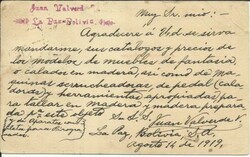 Juan Valverde
La Paz-Bolivia.
Muy Sr. mio:
Agradecere á Vd. se sirva
mandarme, sus catálogos y precios de
los modelos de muebles de fantasia,
o calados en madera, asi como de Ma-
quinas de pedal (cala-
doras) y herramientas apropiadas pa-
ra tallar en madera y madera prepara-
da para este objeto.
Juan Valverde V.
La Paz, Bolivia, S.A.
Agosto 14 de 1919.